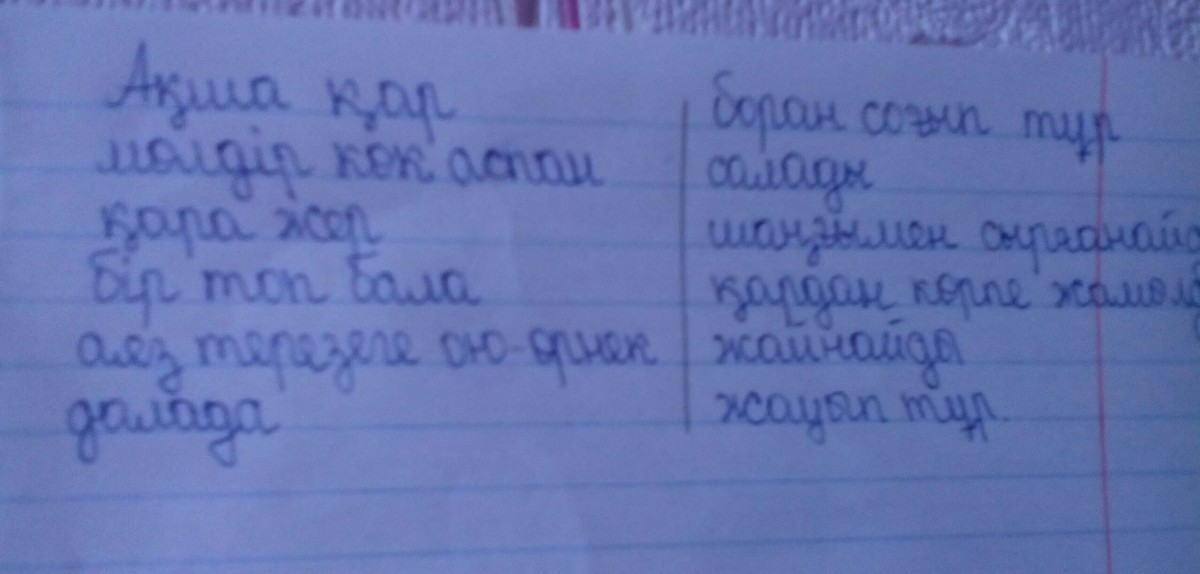 Ақша қар
мөлдір көк аспан
қара жер
бір топ бала
аяз терезеге ою-өрнек
далада
боран соғып тұр
салады
шаңғымен сырғанайд
қардан көрпе жамыл
жайнайды
жауып тұр.